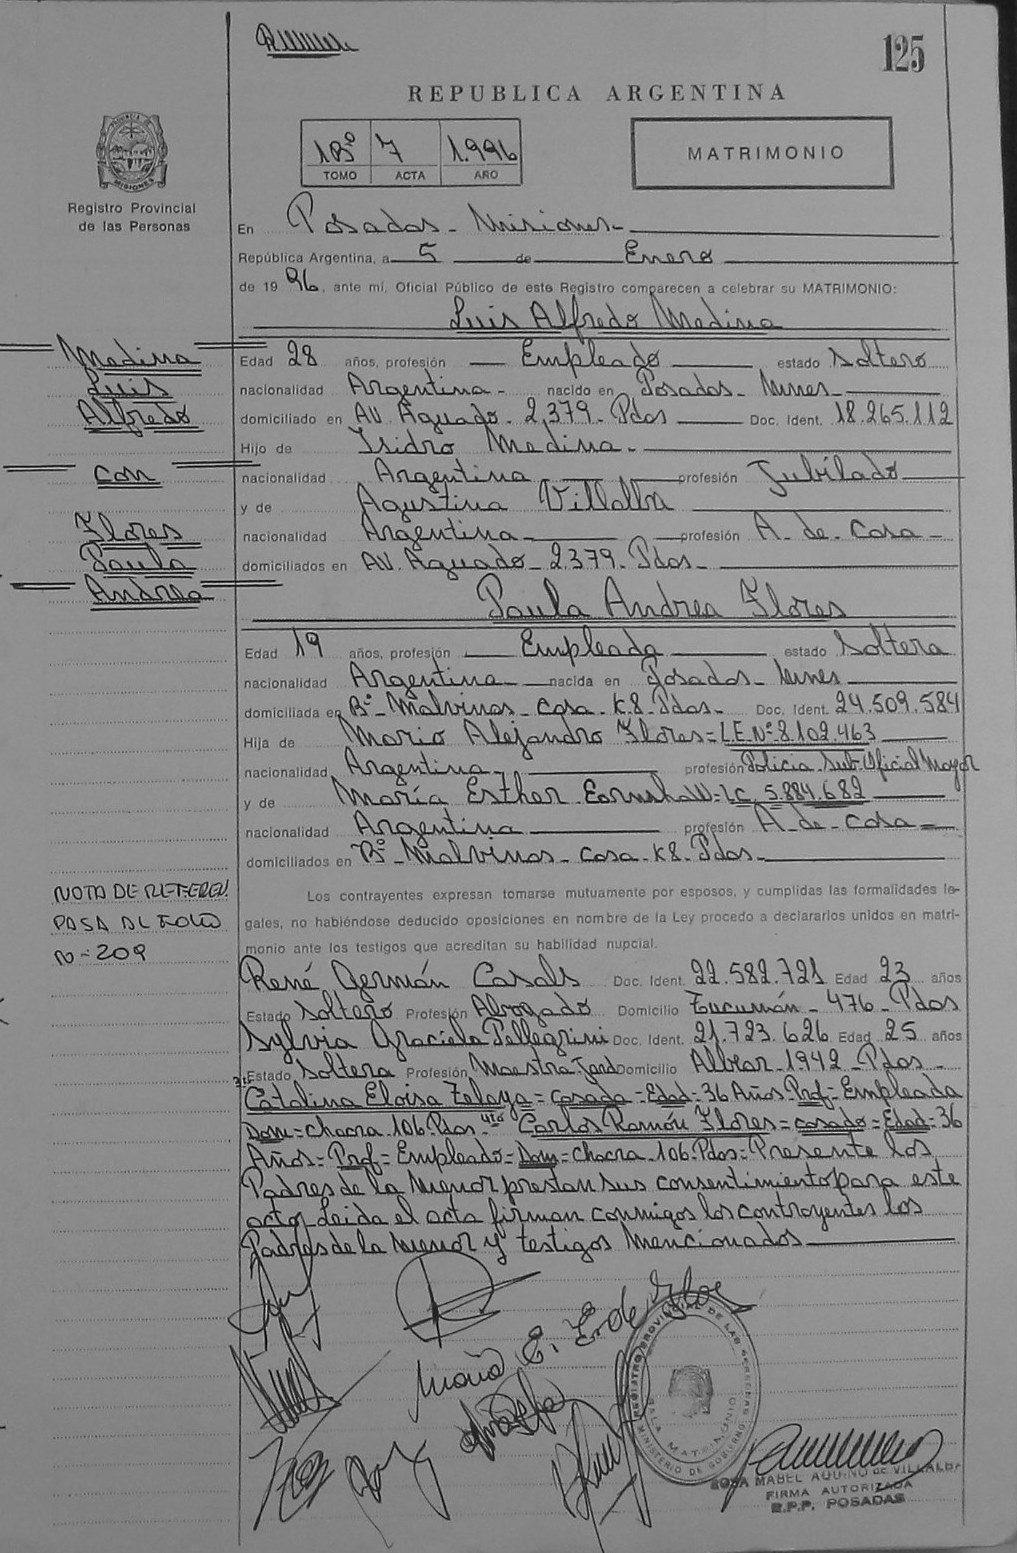 125
REPUBLICA ARGENTINA
1Bº 7 1.996
TOMO ACTA AÑO
MATRIMONIO
PROVINCIA DE MISIONES
Registro Provincial
de las Personas
En Posadas - Misiones -
República Argentina, a 5 de Enero
de 1996, ante mí, Oficial Público de este Registro comparecen a celebrar su MATRIMONIO:
Luis Alfredo Medina
Medina
Luis
Alfredo
con
Flores
Paula
Andrea
Edad 28 años, profesión Empleado estado Soltero
nacionalidad Argentina - nacido en Posadas - Mnes -
domiciliado en AV. Aguado - 2.379 - Pdas Doc. Ident. 18.265.112
Hijo de Isidro Medina -
nacionalidad Argentina profesión Jubilado
y de Agustina Villalba
nacionalidad Argentina - profesión A - de - casa -
domiciliados en AV. Aguado - 2.379 - Pdas -
Paula Andrea Flores
Edad 19 años, profesión Empleada estado Soltera
nacionalidad Argentina - nacida en Posadas - Mnes -
domiciliada en Bº - Malvinas - casa - K8 - Pdas - Doc. Ident. 24.509.584
Hija de Mario Alejandro Flores = L.E.Nº 8.102.463
nacionalidad Argentina - profesión Policia Sub. Oficial Mayor
y de María Esther = LC 5.884.682
nacionalidad Argentina profesión A - de - casa -
domiciliados en Bº - Malvinas - casa - K8 - Pdas -
NOTA DE REFEREN
PASA AL FOLIO
Nº - 209
Los contrayentes expresan tomarse mutuamente por esposos, y cumplidas las formalidades le-
gales, no habiéndose deducido oposiciones en nombre de la Ley procedo a declararlos unidos en matri-
monio ante los testigos que acreditan su habilidad nupcial.
René Germán Casals Doc. Ident. 22.582.721 Edad 23 años
Estado Soltero Profesión Abogado Domicilio Tucumán - 476 - Pdas
Sylvia Graciela Pellegrini Doc. Ident. 21.723.626 Edad 25 años
Estado Soltera Profesión Maestra Jard Domicilio Alvear 1942 - Pdas -
Catalina Eloisa Zelaya = casada = Edad = 36 Años Prof = Empleada
Dom = chacra 106 Pdas - 4to Carlos Ramón Flores = casado = Edad = 36
Años = Prof = Empleado = Dom = chacra - 106 - Pdas = Presente los
Padres de la menor prestan sus consentimiento para este
acto, Leida el acta firman conmigos los contrayentes los
Padres de la menor y testigos mencionados
María E. E. de Flores
REGISTRO PROVINCIAL DE LAS PERSONAS
SALA MATRIMONIO
MINISTERIO DE GOBIERNO
ROSA MABEL AQUINO DE VILLALBA
FIRMA AUTORIZADA
R.P.P. POSADAS